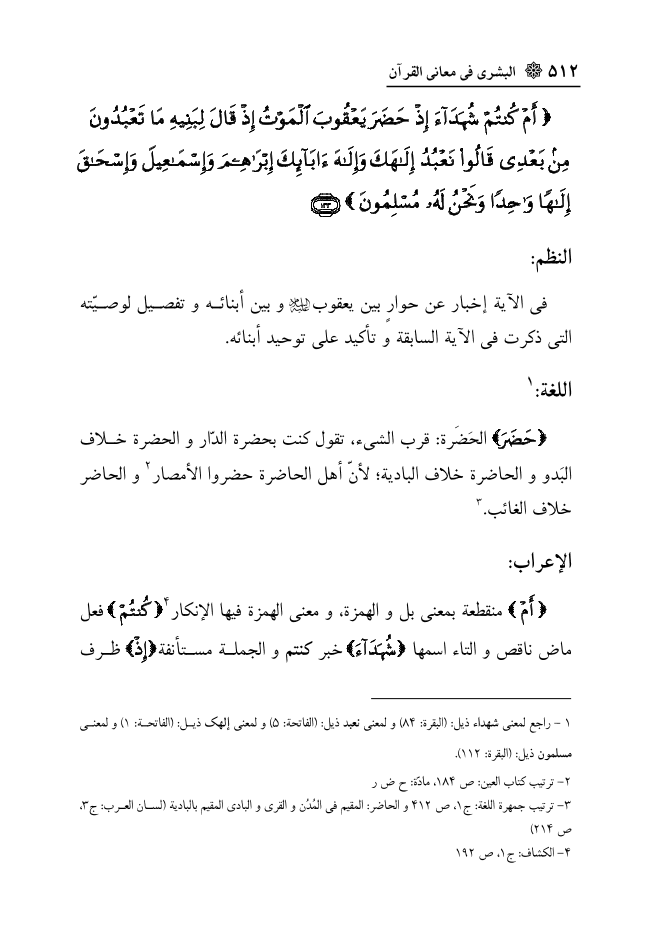 ۵۱۲ ۞ البشرى فى معانى القرآن
﴿ أَمْ كُنتُمْ شُهَدَآءَ إِذْ حَضَرَ يَعْقُوبَ ٱلْمَوْتُ إِذْ قَالَ لِبَنِيهِ مَا تَعْبُدُونَ
مِنۢ بَعْدِى قَالُوا۟ نَعْبُدُ إِلَـٰهَكَ وَإِلَـٰهَ ءَابَآئِكَ إِبْرَٰهِـۧمَ وَإِسْمَـٰعِيلَ وَإِسْحَـٰقَ
إِلَـٰهًا وَٰحِدًا وَنَحْنُ لَهُۥ مُسْلِمُونَ ﴾ ١٣٣
النظم:
فى الآية إخبار عن حوارٍ بين يعقوب و بين أبنائه و تفصيل لوصيّته
التى ذكرت فى الآية السابقة و تأكيد على توحيد أبنائه.
اللغة:۱
﴿حَضَرَ﴾ الحَضَرة: قرب الشىء، تقول كنت بحضرة الدّار و الحضرة خلاف
البَدو و الحاضرة خلاف البادية؛ لأنّ أهل الحاضرة حضروا الأمصار۲ و الحاضر
خلاف الغائب.۳
الإعراب:
﴿أَمْ﴾ منقطعة بمعنى بل و الهمزة، و معنى الهمزة فيها الإنكار۴ ﴿كُنتُمْ﴾ فعل
ماض ناقص و التاء اسمها ﴿شُهَدَآءَ﴾ خبر كنتم و الجملة مستأنفة ﴿إِذْ﴾ ظرف
۱ - راجع لمعنى شهداء ذيل: (البقرة: ۸۴) و لمعنى نعبد ذيل: (الفاتحة: ۵) و لمعنى إلهك ذيل: (الفاتحة: ۱) و لمعنى
مسلمون ذيل: (البقرة: ۱۱۲).
۲- ترتيب كتاب العين: ص ۱۸۴، مادّة: ح ض ر
۳- ترتيب جمهرة اللغة: ج۱، ص ۴۱۲ و الحاضر: المقيم فى المُدُن و القرى و البادى المقيم بالبادية (لسان العرب: ج۳،
ص ۲۱۴)
۴- الكشاف: ج۱، ص ۱۹۲